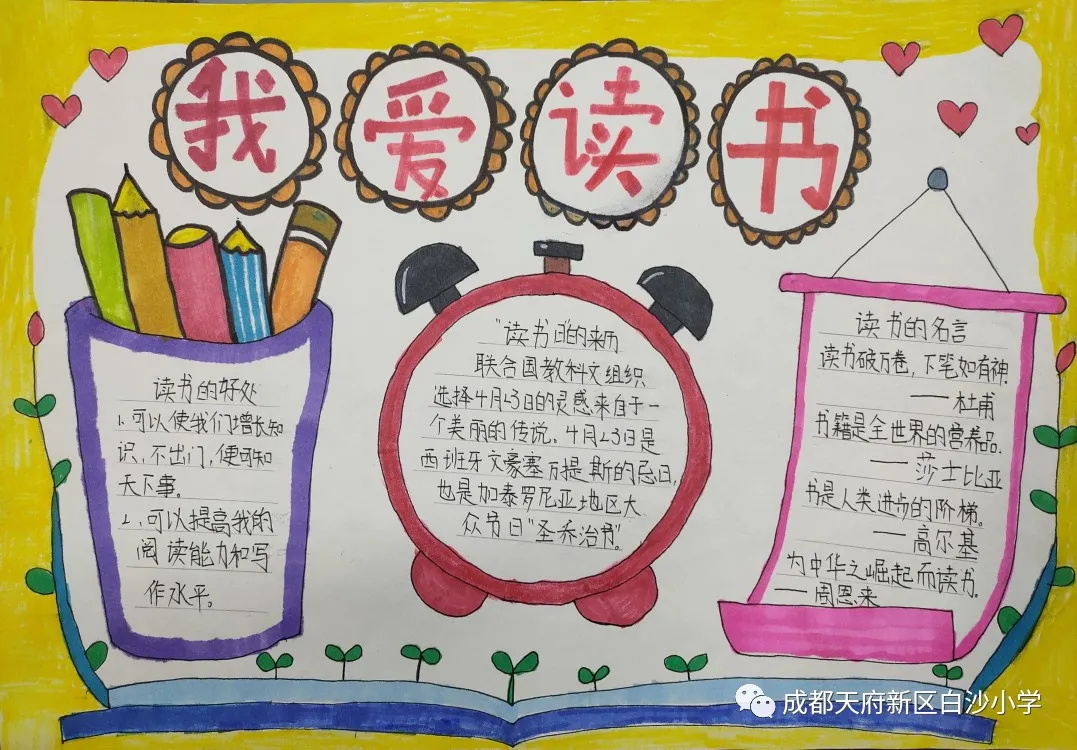 我爱读书
读书的好处
1.可以使我们增长知
识,不出门,便可知
天下事。
2、可以提高我的
阅读能力和写
作水平。
"读书日"的来历
联合国教科文组织
选择4月23日的灵感来自于一
个美丽的传说。4月23日是
西班牙文豪塞万提斯的忌日,
也是加泰罗尼亚地区大
众节日"圣乔治节"。
读书的名言
读书破万卷,下笔如有神.
——杜甫
书籍是全世界的营养品.
——莎士比亚
书是人类进步的阶梯。
——高尔基
为中华之崛起而读书.
——周恩来
成都天府新区白沙小学